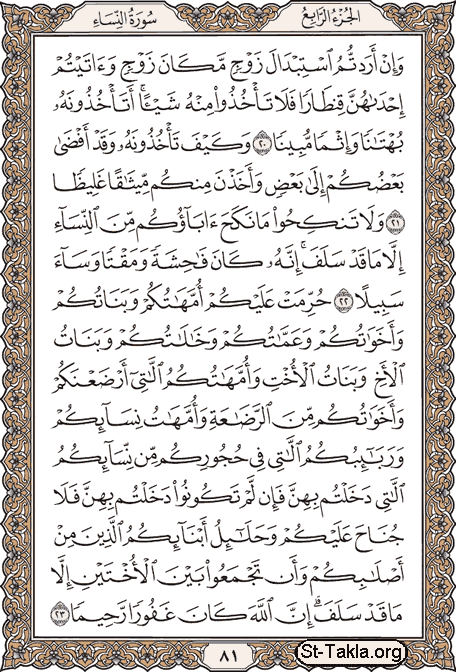 سُورَةُ النِّسَاءِ
الجُزْءُ الرَّابِعُ
وَإِنْ أَرَدتُّمُ ٱسْتِبْدَالَ زَوْجٍ مَّكَانَ زَوْجٍ وَءَاتَيْتُمْ
إِحْدَىٰهُنَّ قِنطَارًا فَلَا تَأْخُذُوا۟ مِنْهُ شَيْـًٔا ۚ أَتَأْخُذُونَهُۥ
بُهْتَٰنًا وَإِثْمًا مُّبِينًا ٢٠ وَكَيْفَ تَأْخُذُونَهُۥ وَقَدْ أَفْضَىٰ
بَعْضُكُمْ إِلَىٰ بَعْضٍ وَأَخَذْنَ مِنكُم مِّيثَٰقًا غَلِيظًا
٢١ وَلَا تَنكِحُوا۟ مَا نَكَحَ ءَابَآؤُكُم مِّنَ ٱلنِّسَآءِ
إِلَّا مَا قَدْ سَلَفَ ۚ إِنَّهُۥ كَانَ فَٰحِشَةً وَمَقْتًا وَسَآءَ
سَبِيلًا ٢٢ حُرِّمَتْ عَلَيْكُمْ أُمَّهَٰتُكُمْ وَبَنَاتُكُمْ
وَأَخَوَٰتُكُمْ وَعَمَّٰتُكُمْ وَخَٰلَٰتُكُمْ وَبَنَاتُ
ٱلْأَخِ وَبَنَاتُ ٱلْأُخْتِ وَأُمَّهَٰتُكُمُ ٱلَّٰتِىٓ أَرْضَعْنَكُمْ
وَأَخَوَٰتُكُم مِّنَ ٱلرَّضَٰعَةِ وَأُمَّهَٰتُ نِسَآئِكُمْ
وَرَبَٰٓئِبُكُمُ ٱلَّٰتِى فِى حُجُورِكُم مِّن نِّسَآئِكُمُ
ٱلَّٰتِى دَخَلْتُم بِهِنَّ فَإِن لَّمْ تَكُونُوا۟ دَخَلْتُم بِهِنَّ فَلَا
جُنَاحَ عَلَيْكُمْ وَحَلَٰٓئِلُ أَبْنَآئِكُمُ ٱلَّذِينَ مِنْ
أَصْلَٰبِكُمْ وَأَن تَجْمَعُوا۟ بَيْنَ ٱلْأُخْتَيْنِ إِلَّا
مَا قَدْ سَلَفَ ۗ إِنَّ ٱللَّهَ كَانَ غَفُورًا رَّحِيمًا ٢٣
٨١
St-Takla.org